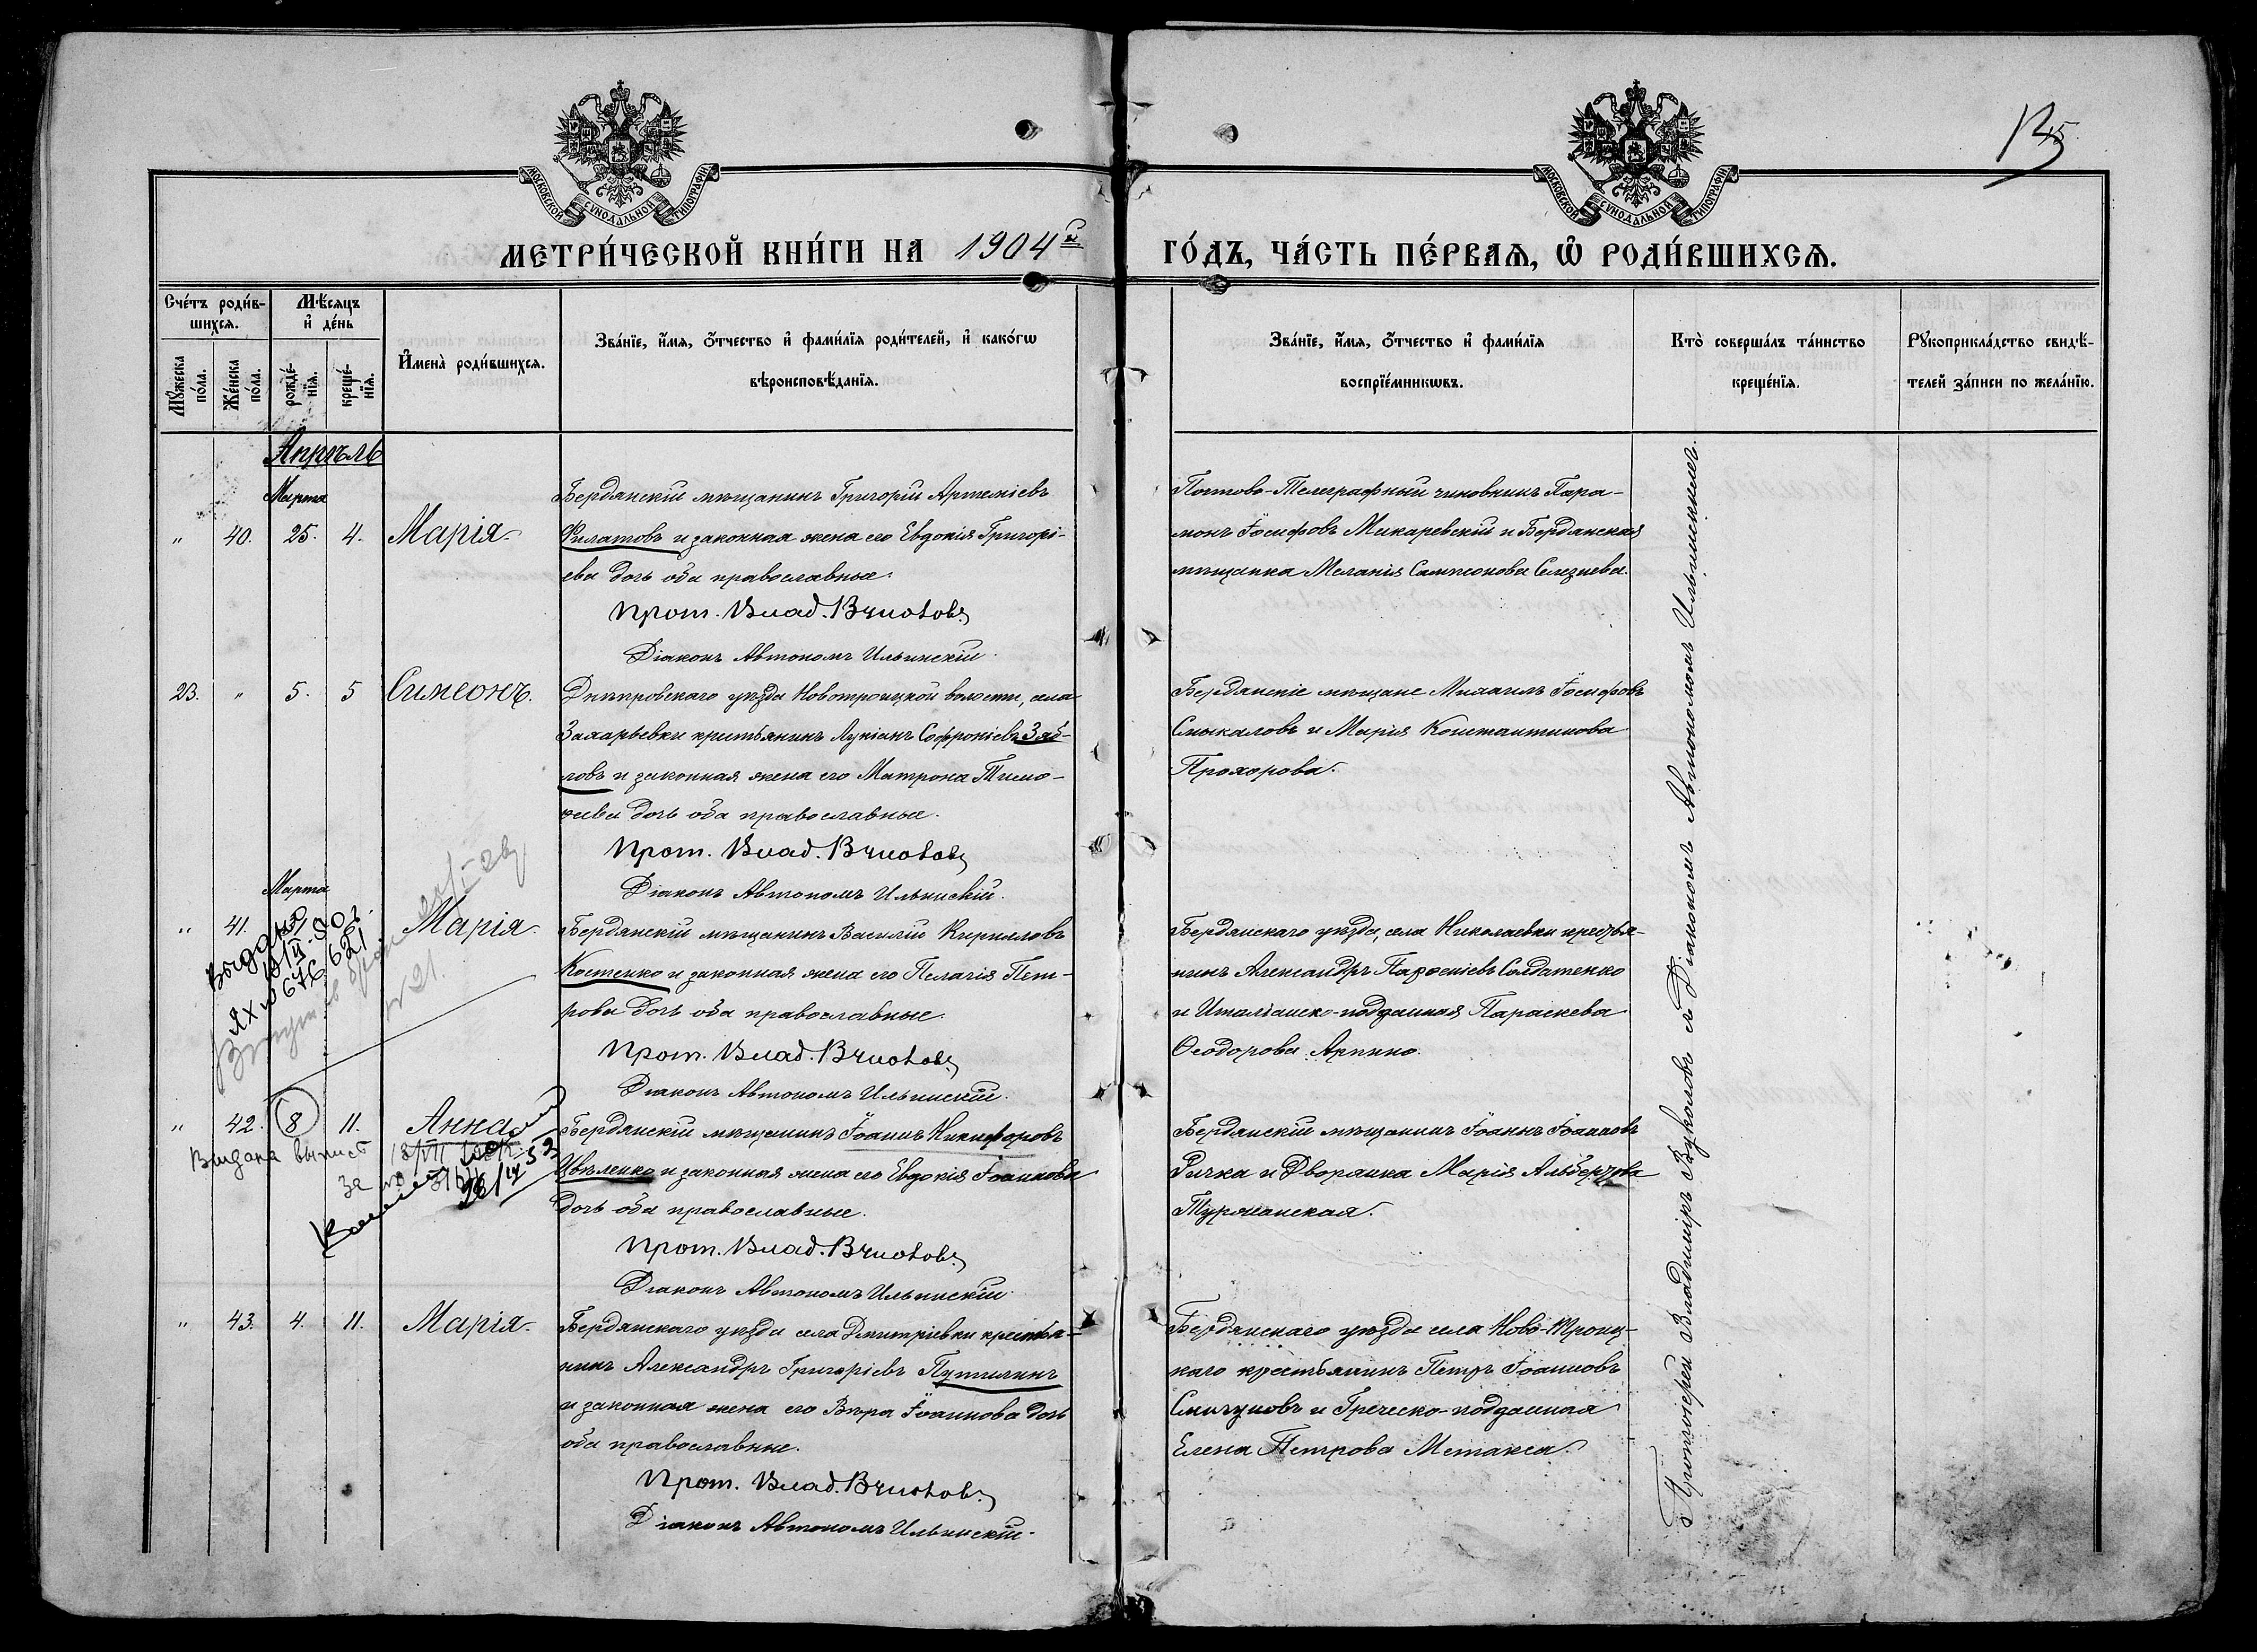 135
МОСКОВСКОЙ СУНОДАЛЬНОЙ ТИПОГРАФІИ
МОСКОВСКОЙ СУНОДАЛЬНОЙ ТИПОГРАФІИ
МЕТРИ́ЧЕСКОЙ КНИ́ГИ НА 1904й ГО́ДЪ, ЧА́СТЬ ПЕ́РВАѦ, Ѡ҆ РОДИ́ВШИХСѦ.
Сче́тъ роди́в-
шихсѧ.
Мꙋ́жеска по́ла.
Же́нска по́ла.
Мѣ́сѧцъ
и҆ де́нь
рожде́-
нїѧ.
креще́-
нїѧ.
И҆мена̀ роди́вшихсѧ.
Зва́нїе, и҆́мѧ, ѻ҆́тчество и҆ фами́лїѧ роди́телей, и҆ како́гѡ
вѣроисповѣ́данїѧ.
Зва́нїе, и҆́мѧ, ѻ҆́тчество и҆ фами́лїѧ
воспрїе́мникѡвъ.
Кто̀ соверша́лъ та́инство
креще́нїѧ.
Рꙋкоприкла́дство свидѣ́-
телей за́писи по жела́нїю.
Апрѣль
Марта
" 40. 25. 4. Марія.
Бердянскій мѣщанинъ Григорій Артеміевъ
Филатовъ и законная жена его Евдокія Григорі-
ева дочь оба православные.
Прот. Влад. Вучоловъ
Діаконъ Автономъ Ильинскій.
Почтово-Телеграфный чиновникъ Пара-
монъ Іосифовъ Макаревскій и Бердянская
мѣщанка Меланія Сампсонова Селезнева.
23. " 5. 5 Симеонъ.
Днѣпровскаго уѣзда Новотроицкой волости, села
Захарьевки крестьянинъ Лукіанъ Софроніевъ Зяб-
ловъ и законная жена его Матрона Тимо-
ѳеева дочь оба православные.
Прот. Влад.
Діаконъ Автономъ Ильинскій.
Бердянскіе мѣщане Михаилъ Іосифовъ
Смыкаловъ и Марія Константинова
Прохорова.
Марта
" 41. Марія.
Бердянскій мѣщанинъ Василій Кирилловъ
Костенко и законная жена его Пелагія Пет-
рова дочь оба православные.
Прот. Влад.
Діаконъ Автономъ Ильинскій.
Бердянскаго уѣзда, села Николаевки крестья-
нинъ Александръ Парѳеніевъ Солдатенко
и Итальянско-подданная Параскева
Ѳеодорова Арпино.
№ 21.
" 42. 8 11. Анна
Выдана выпись
за №
Бердянскій мѣщанинъ Іоаннъ Никифоровъ
Цвѣленко и законная жена его Евдокія Іоаннова
дочь оба православные.
Прот. Влад.
Діаконъ Автономъ Ильинскій.
Бердянскій мѣщанинъ Іоаннъ Іоанновъ
Ричка и Дворянка Марія Альбертова
Туржанская.
" 43. 4. 11. Марія.
Бердянскаго уѣзда села Дмитріевки крестья-
нинъ Александръ Григоріевъ Путилинъ
и законная жена его Вѣра Іоаннова дочь
оба православные.
Прот. Влад.
Діаконъ Автономъ Ильинскій.
Бердянскаго уѣзда села Ново-Троиц-
каго крестьянинъ Петръ Іоанновъ
Смычуковъ и Греческо-подданная
Елена Петрова Метакса.
Протоіерей Владиміръ Вуколовъ съ Діакономъ Автономомъ Ильинскимъ.